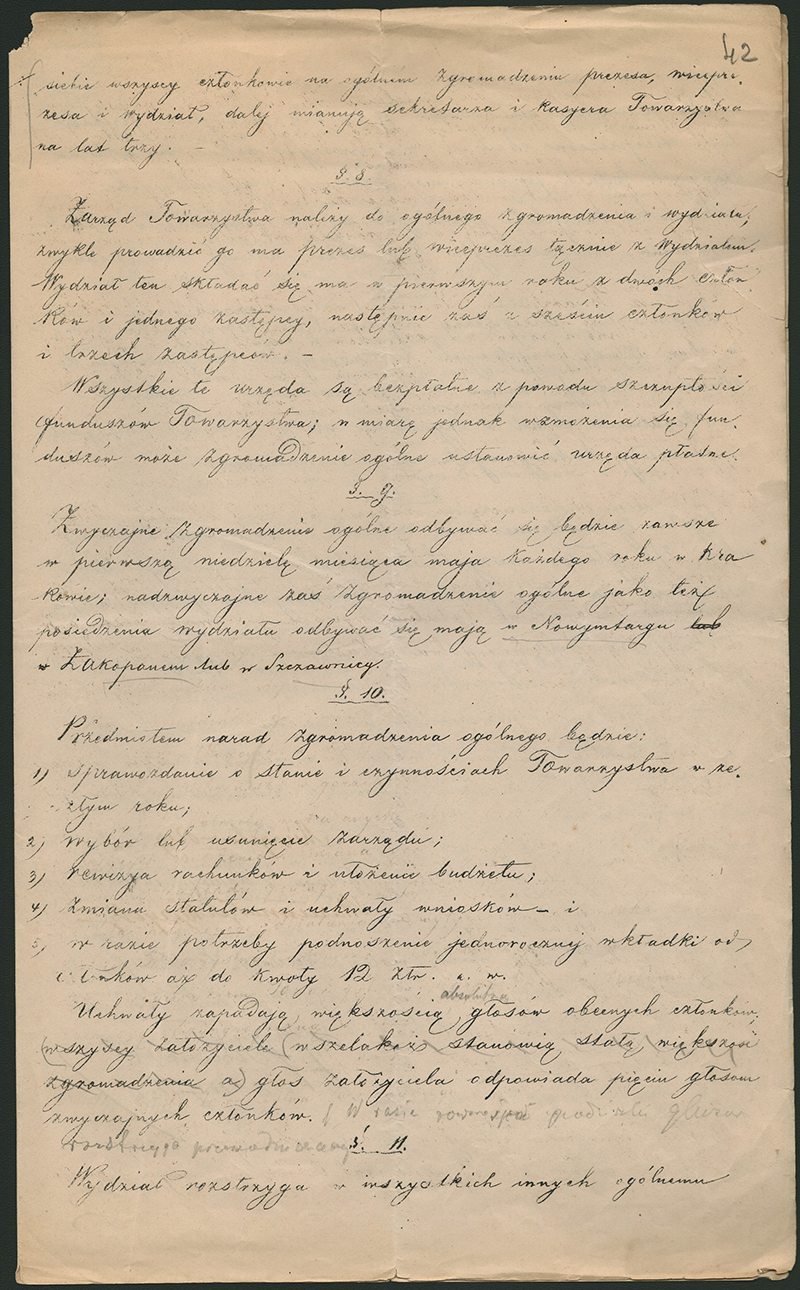 42
siebie wszyscy członkowie na ogólnem zgromadzeniu prezesa, wicepre-
zesa i wydział, dalej mianują sekretarza i kasyera Towarzystwa
na lat trzy. —
§. 8.
Zarząd Towarzystwa należy do ogólnego zgromadzenia i wydziału,
zwykle prowadzić go ma prezes lub wiceprezes łącznie z wydziałem.
Wydział ten składać się ma w pierwszym roku z dwóch człon-
ków i jednego zastępcy, następnie zaś z sześciu członków
i trzech zastępców. —
Wszystkie te urzęda są bezpłatne z powodu szczupłości
funduszów Towarzystwa; w miarę jednak wzmożenia się fun-
duszów może zgromadzenie ogólne ustanowić urzęda płatne.
§. 9.
Zwyczajne zgromadzenie ogólne odbywać się będzie zawsze
w pierwszą niedzielę miesiąca maja każdego roku w Kra
kowie; nadzwyczajne zaś zgromadzenie ogólne jako też
posiedzenia wydziału odbywać się mają w Nowymtargu lub
w Zakopanem lub w Szczawnicy.
§. 10.
Przedmiotem narad zgromadzenia ogólnego będzie:
1) sprawozdanie o stanie i czynnościach Towarzystwa w ze-
szłym roku;
2) wybór lub usunięcie zarządu;
3) rewizya rachunków i ułożenie budżetu;
4) zmiana statutów i uchwały wniosków — i
5) w razie potrzeby podnoszenie jednorocznej wkładki od
członków aż do kwoty 12 złr. a. w.
absolutną
Uchwały zapadają większością głosów obecnych członków,
(wszyscy założyciele (wszelakoż stanowią stałą większość
zgromadzenia a) głos założyciela odpowiada pięciu głosom
zwyczajnych członków. / W razie równości głosów
rozstrzyga przewodniczący
§. 11.
Wydział rozstrzyga w wszystkich innych ogólnemu